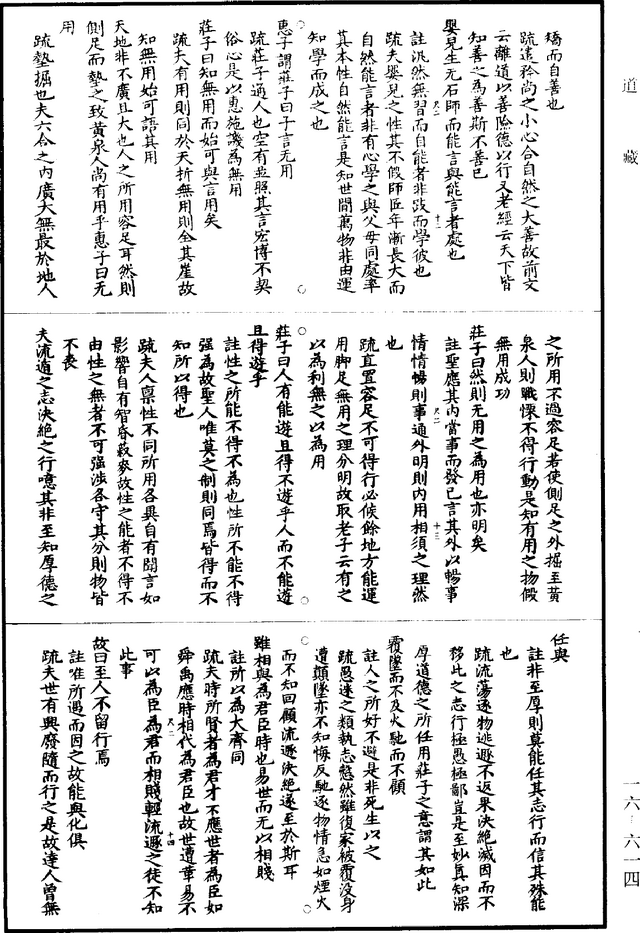 道藏
矯而自善也
疏遣矜尚之小心合自然之大善故前文
云離道以善險德以行又老經云天下皆
知善之為善斯不善已
嬰兒生无石師而能言與能言者處也
註汎然無習而自能者非跂而學彼也
疏夫嬰兒之性其不假師匠年漸長大而
自然能言者非有心學之與父母同處率
其本性自然能言是知世間萬物非由運
知學而成之也
惠子謂莊子曰子言无用
疏莊子通人也空有並照其言宏博不契
俗心是以惠施譏為無用
莊子曰知無用而始可與言用矣
疏夫有用則同於夭折無用則全其崖故
知無用始可語其用
天地非不廣且大也人之所用容足耳然則
側足而墊之致黃泉人尚有用乎惠子曰无
用
疏墊掘也夫六合之內廣大無最於地人
之所用不過容足若使側足之外掘至黃
泉人則戰慄不得行動是知有用之物假
無用成功
莊子曰然則无用之為用也亦明矣
註聖應其內當事而發已言其外以暢事
情情暢則事通外明則內用相須之理然
也
疏直置容足不可得行必候餘地方能運
用脚足無用之理分明故取老子云有之
以為利無之以為用
莊子曰人有能遊且得不遊乎人而不能遊
且得遊乎
註性之所能不得不為也性所不能不得
强為故聖人唯莫之制則同焉皆得而不
知所以得也
疏夫人稟性不同所用各異自有聞言如
影響自有智昏菽麥故性之能者不得不
由性之無者不可强涉各守其分則物皆
不喪
夫流遁之志決絕之行噫其非至知厚德之
任與
註非至厚則莫能任其志行而信其殊能
也
疏流蕩逐物逃遯不返果決絕滅因而不
移此之志行極愚極鄙豈是至妙真知深
厚道德之所任用莊子之意謂其如此
覆墜而不反火馳而不顧
註人之所好不避是非死生以之
疏愚迷之類執志慤然雖復家被覆沒身
遭顛墜亦不知悔反馳逐物情急如煙火
而不知回顧流遯決絕遂至於斯耳
雖相與為君臣時也易世而无以相賤
註所以為大齊同
疏夫時所賢者為君才不應世者為臣如
舜禹應時相代為君臣也故世遭革易不
可以為臣為君而相賤輕流遯之徒不知
此事
故曰至人不留行焉
註唯所遇而因之故能與化俱
疏夫世有興廢隨而行之是故達人曾無
一六-六一四